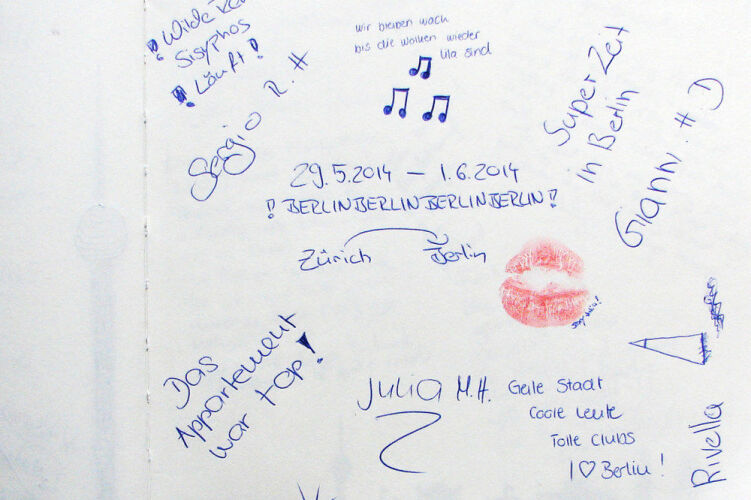 ! Wilde
Sisyphos
! Läuft !
Sergio R. H
wir bleiben wach
bis die wolken wieder
lila sind
Super Zeit
in Berlin
Gianni . H D
29.5.2014 – 1.6.2014
! BERLINBERLINBERLINBERLIN!
Zürich Berlin
Das
Appartement
war top!
Julia M.H.
Geile Stadt
Coole Leute
Tolle Clubs
I ♡ Berlin !
Rivella